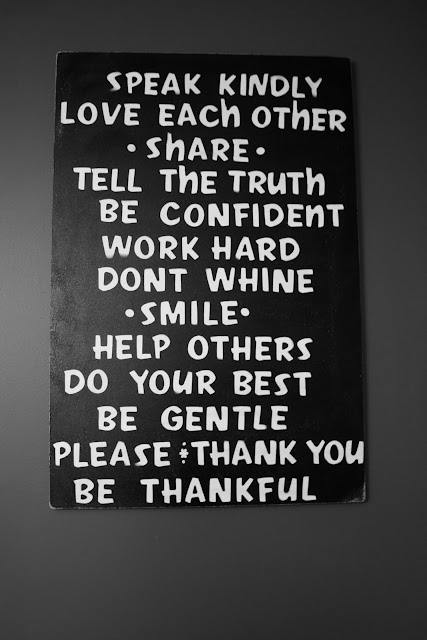 SPEAK KINDLY
LOVE EACh OThER
• ShARE •
TELL ThE TRUTh
BE CONFIDEnT
WORK HARD
DONT WHINE
• SMILE •
HELP OTHERS
DO YOUR BEST
BE GENTLE
PLEASE * THANK YOU
BE THANKFUL